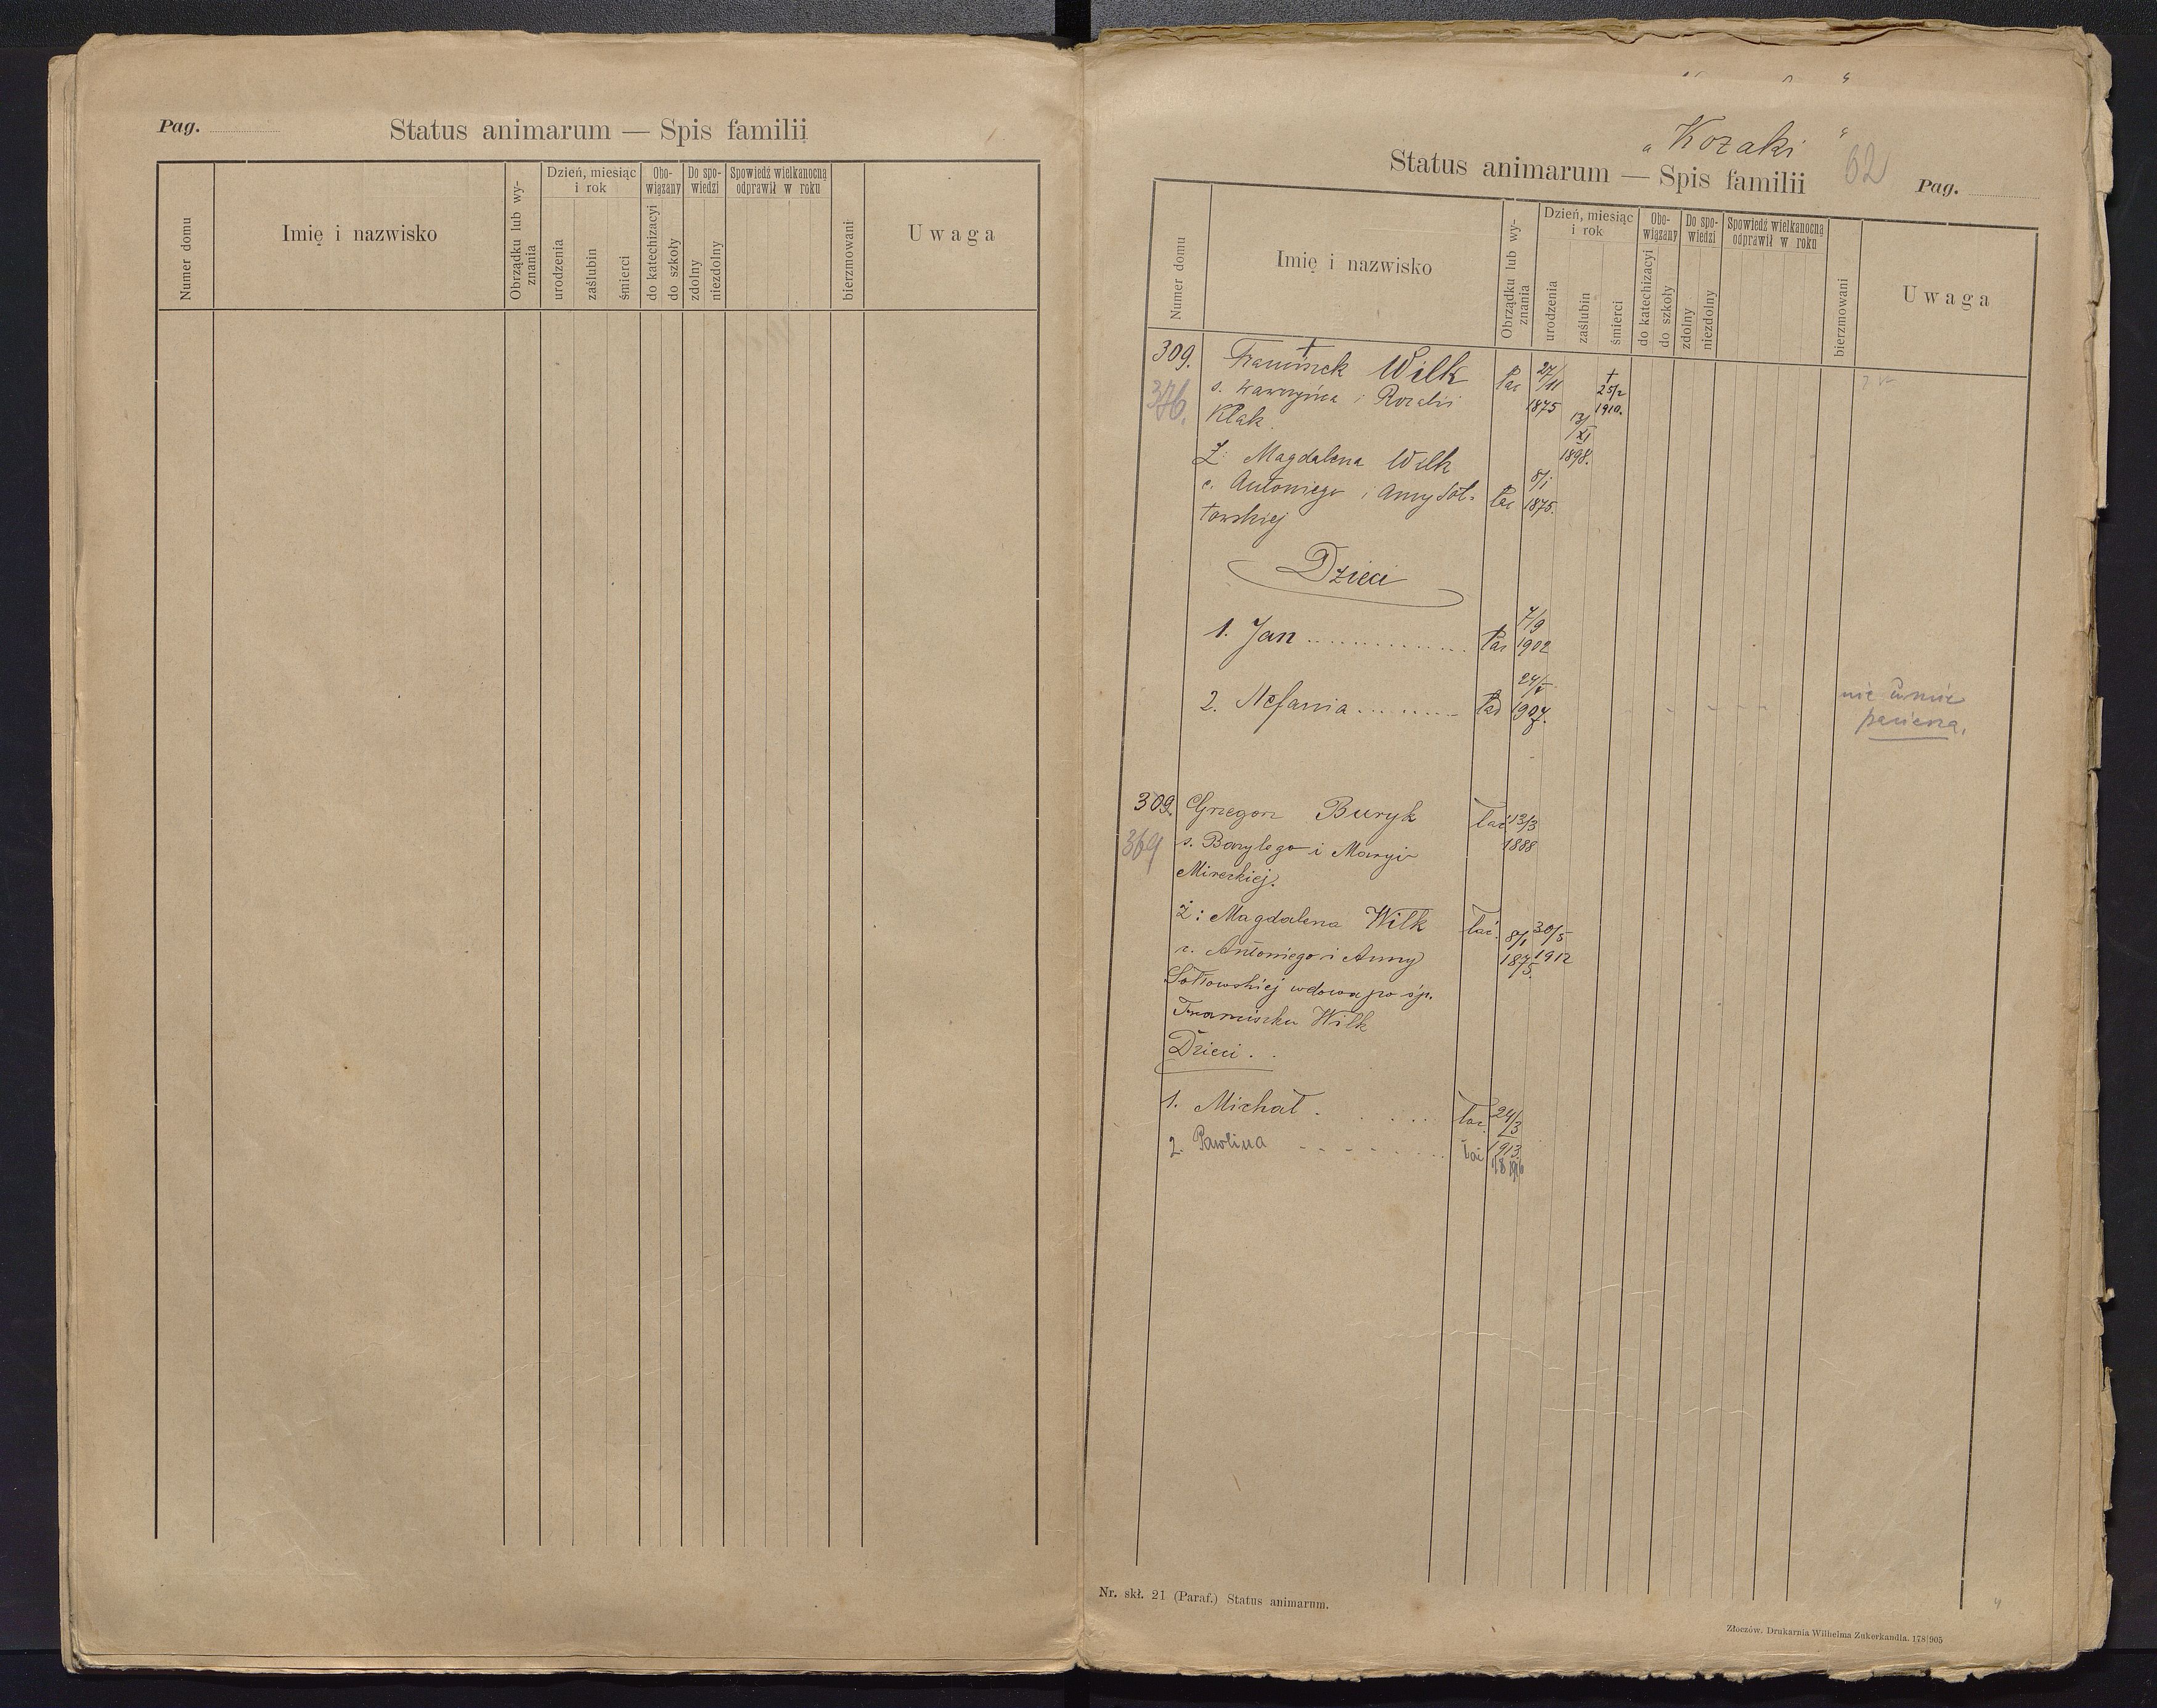 Pag.
Status animarum — Spis familii
Numer domu
Imię i nazwisko
Obrządku lub wy-
znania
Dzień, miesiąc
i rok
urodzenia
zaślubin
śmierci
Obo-
wiązany
do katechizacyi
do szkoły
Do spo-
wiedzi
zdolny
niezdolny
Spowiedź wielkanocną
odprawił w roku
bierzmowani
Uwaga
„Kozaki“
Status animarum — Spis familii
62
Pag.
Numer domu
Imię i nazwisko
Obrządku lub wy-
znania
Dzień, miesiąc
i rok
urodzenia
zaślubin
śmierci
Obo-
wiązany
do katechizacyi
do szkoły
Do spo-
wiedzi
zdolny
niezdolny
Spowiedź wielkanocną
odprawił w roku
bierzmowani
Uwaga
309. Franciszek Wilk łac 27/11 1875 † 25/2 1910.
376. s. Wawrzyńca i Rozalii
Kłak. 13/XI 1898.
Ż: Magdalena Wilk
c. Antoniego i Anny Soł- łac 8/1 1875.
towskiej
Dzieci
1. Jan łac 7/9 1902
2. Stefania łac 1907.
nie umie
pacierza.
309. Grzegorz Buryk łac 13/3 1888
369 s. Bazylego i Maryi
Mireckiej.
Ż: Magdalena Wilk łac. 8/1 1875. 30/5 1912
c. Antoniego i Anny
Sołtowskiej wdowa po śp.
Franciszku Wilk
Dzieci.
1. Michał łac. 24/3 1913.
2. Pawlina łac
Nr. skł. 21 (Paraf.) Status animarum.
Złoczów. Drukarnia Wilhelma Zukerkandla. 178/905